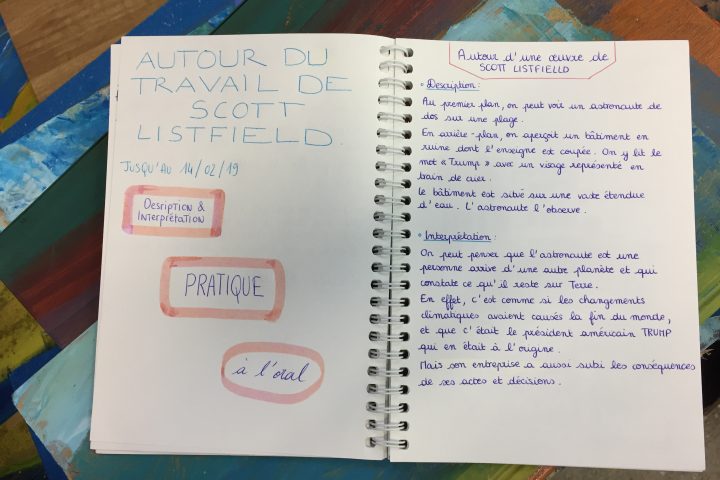 AUTOUR DU
TRAVAIL DE
SCOTT
LISTFIELD.
JUSQU'AU 14/02/19
Desription &
Interprétation
PRATIQUE
à l'oral
Autour d'une œuvre de
SCOTT LISTFIELLD
Description :
Au premier plan, on peut voir un astronaute de
dos sur une plage.
En arrière-plan, on aperçoit un bâtiment en
ruine dont l'enseigne est coupée. On y lit le
mot « Trump » avec un visage représenté en
train de crier.
Le bâtiment est situé sur une vaste étendue
d'eau. L'astronaute l'observe.
Interprétation :
On peut penser que l'astronaute est une
personne arrive d'une autre planète et qui
constate ce qu'il reste sur Terre.
En effet, c'est comme si les changements
climatiques avaient causés la fin du monde,
et que c'était le président américain TRUMP
qui en était à l'origine.
Mais son entreprise a aussi subi les conséquences
de ses actes et décisions.